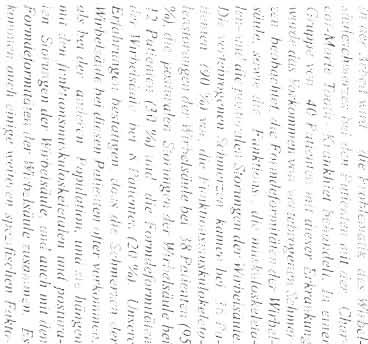 In der Arbeit wird die Problematik des Wirbel-
säulenschmerzes bei den Patienten mit der Char-
cot-Marie-Tooth Krankheit behandelt. In einer
Gruppe von 40 Patienten mit dieser Erkrankung
wurde das Vorkommen von vertebrogenen Schmer-
zen beobachtet, die Formdeformitäten der Wirbel-
säule sowie die Funktions- die muskuloskeleta-
len und die posturalen Störungen der Wirbelsäule.
Die vertebrogenen Schmerzen kamen bei Pa-
tienten (90 %) vor, die Funktionsmuskuloskeleta-
lstörungen der Wirbelsäule bei 38 Patienten (95
%), die posturalen Störungen der Wirbelsäule bei
12 Patienten (30 %) und die Formdeformitäten
der Wirbelsäule bei 8 Patienten (20 %). Unsere
Erfahrungen bestätigen, dass die Schmerzen der
Wirbelsäule bei diesen Patienten öfter vorkommen,
als bei der anderen Population, und sie hängen
mit den funktionsmuskuloskeletalen und postura-
len Störungen der Wirbelsäule, und auch mit den
Formdeformitäten der Wirbelsäule zusammen. Es
kommen auch einige weitere spezifischen Fakto-